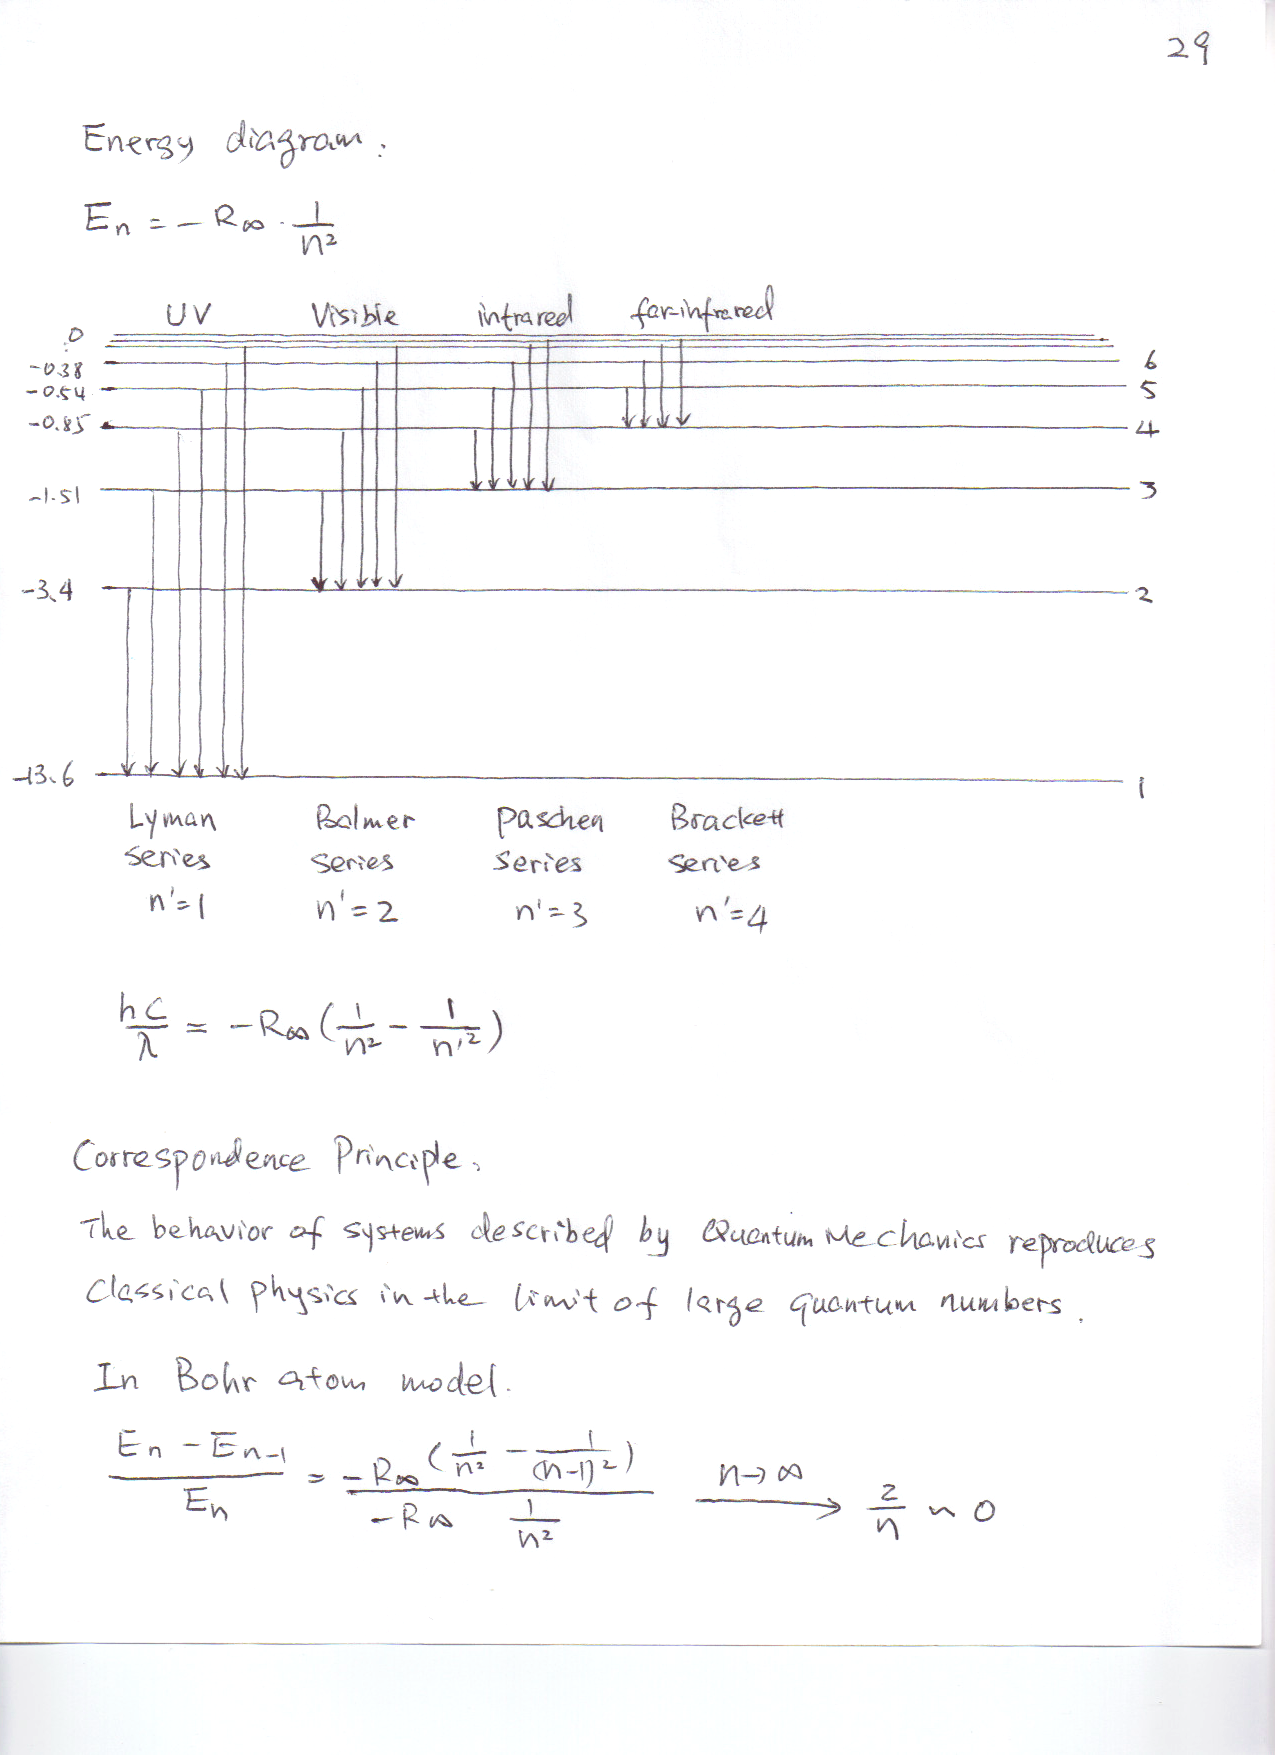 29
Energy diagram:
Eₙ = − R∞ · 1/n²
UV Visible infrared far-infrared
0
-0.38 6
-0.54 5
-0.85 4
-1.51 3
-3.4 2
-13.6 1
Lyman Balmer Paschen Brackett
Series Series Series Series
n'=1 n'=2 n'=3 n'=4
hc/λ = −R∞ (1/n² − 1/n'²)
Correspondence Principle.
The behavior of systems described by Quantum Mechanics reproduces
Classical physics in the limit of large quantum numbers.
In Bohr atom model.
(Eₙ − Eₙ₋₁)/Eₙ = −R∞ (1/n² − 1/(n−1)²) / (−R∞ 1/n²) n→∞ ⟶ 2/n ~ 0